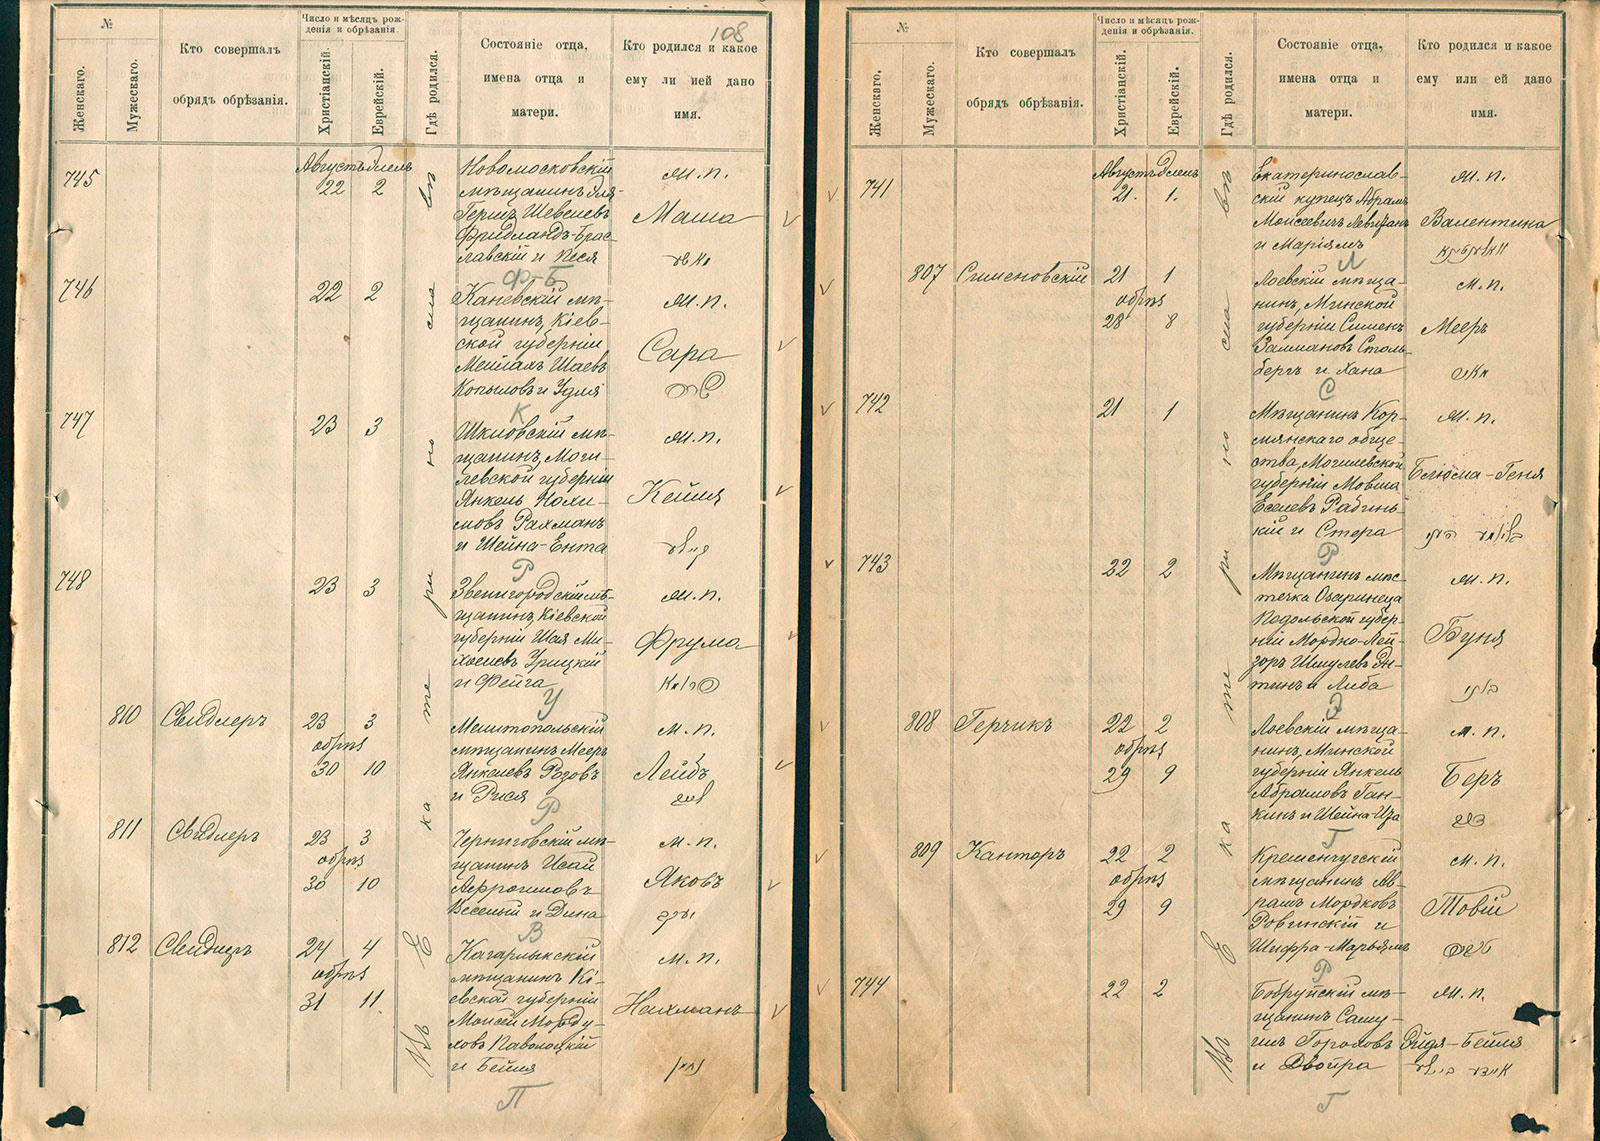 108
№
Женскаго.
Мужескаго.
Кто совершалъ
обрядъ обрѣзанія.
Число и мѣсяцъ рож-
денія и обрѣзанія.
Христіанскій.
Еврейскій.
Гдѣ родился.
Состояніе отца,
имена отца и
матери.
Кто родился и какое
ему ли ией дано
имя.
Въ Екатеринославѣ
745
Августъ Элелъ
22 2
Новомосковскій
мѣщанинъ Эля-
Гершъ Шевелевъ
Фридландъ-Брас-
лавскій и Песя
Ф-Б
м.п.
Маша
746
22 2
Каневскій мѣ-
щанинъ, Кіев-
ской губерніи
Мейлахъ Шаевъ
Копыловъ и Удля
К
м.п.
Сара
שרה
747
23 3
Шкловскій мѣ-
щанинъ, Моги-
левской губерніи
Янкель Нохи-
мовъ Рахманъ
и Шейна-Ента
Р
м.п.
Кейля
748
23 3
Звенигородскій мѣ-
щанинъ, Кіевской
губерніи Шая Ми-
хелевъ Урицкій
и Фейга
У
м.п.
Фрума
פרומא
810
Свидлеръ
23 3
обрѣз
30 10
Мелитопольскій
мѣщанинъ Мееръ
Янкелевъ Розовъ
и Рися
Р
м.п.
Лейбъ
811
Свидлеръ
23 3
обрѣз
30 10
Черниговскій мѣ-
щанинъ Исай
Афроимовъ
Веселый и Дина
В
м.п.
Яковъ
יעקב
812
Свидлеръ
24 4
обрѣз
31 11.
Кагарлыкскій
мѣщанинъ Кі-
евской губерніи
Моисей Морду-
ховъ Паволоцкій
и Бейля
П
м.п.
Нахманъ
נחמן
№
Женскаго.
Мужескаго.
Кто совершалъ
обрядъ обрѣзанія.
Число и мѣсяцъ рож-
денія и обрѣзанія.
Христіанскій.
Еврейскій.
Гдѣ родился.
Состояніе отца,
имена отца и
матери.
Кто родился и какое
ему или ей дано
имя.
Въ Екатеринославѣ
741
Августъ Элелъ
21. 1.
Екатеринослав-
скій купецъ Абрамъ
Моисеевичъ Левитанъ
и Маріямъ
Л
м.п.
Валентина
807
Сименовскій
21 1
обрѣз
28 8
Лоевскій мѣща-
нинъ, Минской
губерніи Симен
Залмановъ Столь-
бергъ и Хана
С
м.п.
Мееръ
מאיר
742
21 1
Мѣщанинъ Кор-
мянскаго обще-
ства, Могилевской
губерніи Мовша
Еселевъ Рабинь-
кій и Стера
Р
м.п.
Блюма-Геня
743
22 2
Мѣщанинъ мѣс-
течка Озаринецъ
Подольской губер-
ніи Мордко-Лей-
зоръ Шмулевъ Эн-
тинъ и Либа
Э
м.п.
Буня
בוני
808
Герчикъ
22 2
обрѣз
29 9
Лоевскій мѣща-
нинъ, Минской
губерніи Янкель
Абрамовъ Ган-
кинъ и Шейна-Иза
Г
м.п.
Беръ
809
Канторъ
22 2
обрѣз
29 9
Кременчугскій
мѣщанинъ Ав-
рамъ Мордковъ
Ровинскій и
Шифра-Марьямъ
Р
м.п.
Товій
744
22 2
Бобруйскій мѣ-
щанинъ Саму-
илъ Гороховъ
и Двойра
Г
м.п.
Эйдя-Бейля